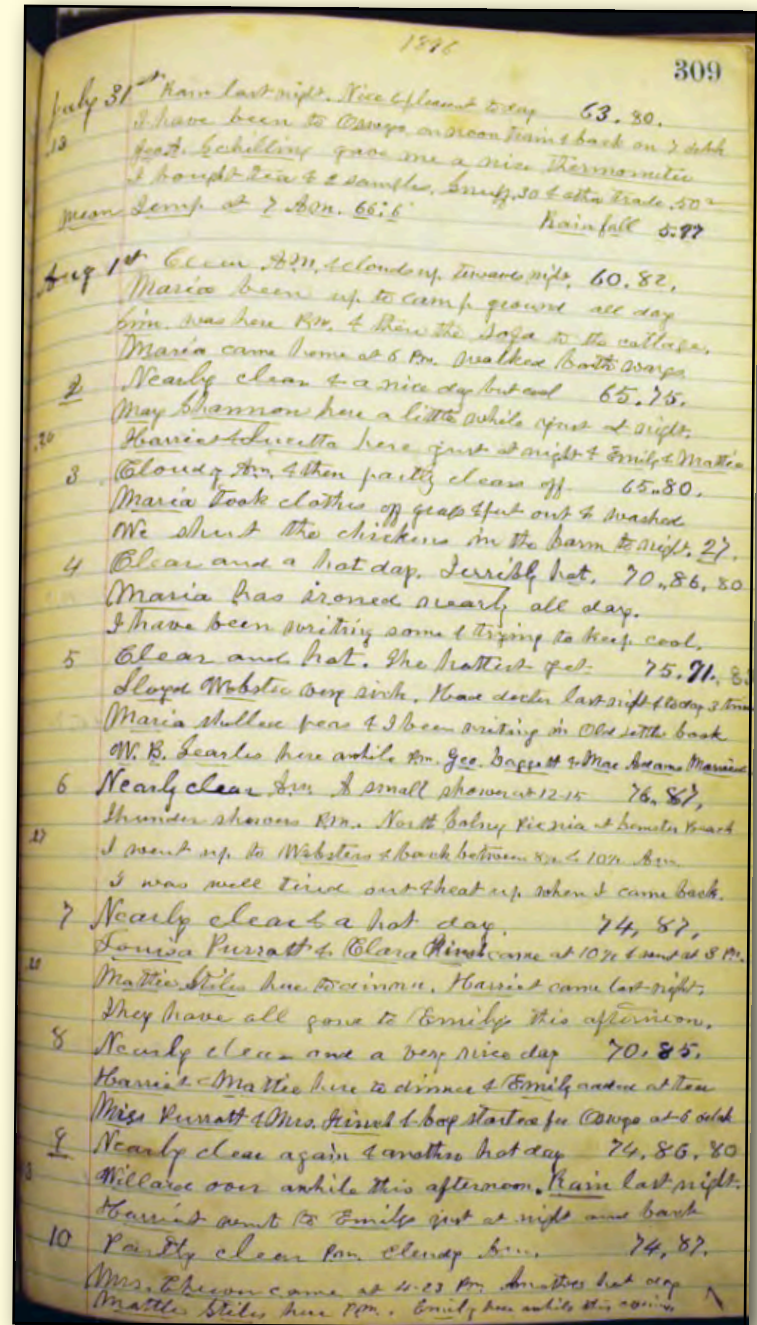 1896
309
July 31st Rain last night. Nice & pleasant today 63. 80.
I have been to Oswego on noon train & back on 7 oclk
.13
Geo A. Schilling gave me a nice Thermometer
I bought Tea & 2 samples. Snuff. 30 & other trade .50
Mean Temp at 7 A.m. 66:6 Rainfall 5.97
Aug 1st Clear A.M. & clouds up towards night. 60. 82.
Maria been up to camp ground all day
was here P.m. & the Sofa to the cottage.
Maria came home at 6 P.m. walked both ways
2 Nearly clear & a nice day but cool 65. 75.
May Shannon here a little while just at night.
.20
Harriet & Lucetta here just at night & Emily & Mattie
3 Cloudy A.m. & then partly clear off. 65. 80.
Maria took clothes off grass & put out & washed
We shut the chickens in the barn to night. 27.
4 Clear and a hot day. Terribly hot. 70. 86, 80
Maria has ironed nearly all day.
I have been writing some & trying to keep cool.
5 Clear and hot. The hottest yet. 75. 91.
Lloyd Webster very sick. Have docter last night & today 3 times
Maria shelled peas & I been writing in Old book
W. B. Searles here awhile P.m. Geo. Daggett & Mae Adams Married
6 Nearly clear A.m. A small shower at 12-15 76, 87,
Thunder showers P.m. North Volney Picnic at Beach
.27
I went up to Websters & back between & 10 A.m.
I was well tired out & heat up when I came back.
7 Nearly clear & a hot day. 74, 87,
Louisa Purratt & Clara came at 10 & went at 3 P.m.
Mattie Stiles here to dinner. Harriet came last night.
They have all gone to Emilys this afternoon.
8 Nearly clear and a very nice day 70. 85.
Harriet Mattie here to dinner & Emily at tea
Miss Purratt & Mrs. & boy started for Oswego at 6 oclk
9 Nearly clear again & another hot day 74, 86, 80
Willard over awhile this afternoon. Rain last night.
Harriet went to Emilys just at night and back
10 Partly clear P.m. Cloudy A.m. 74, 87.
Mrs. came at 4-23 P.m. Another hot day
Mattie Stiles here P.M. Emily here awhile this